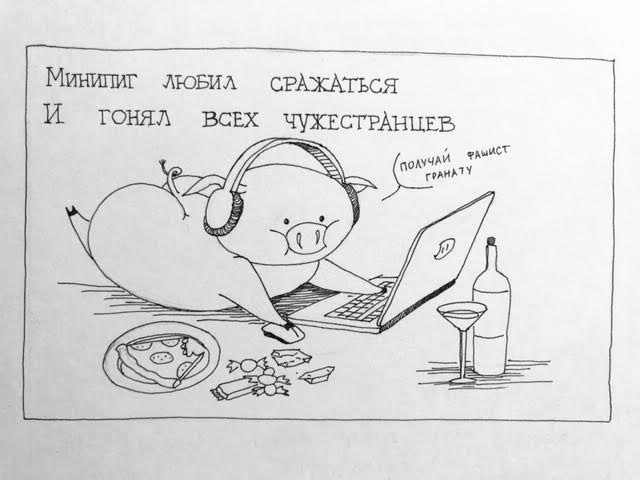 Минипиг любил сражаться
И гонял всех чужестранцев
получай фашист
гранату